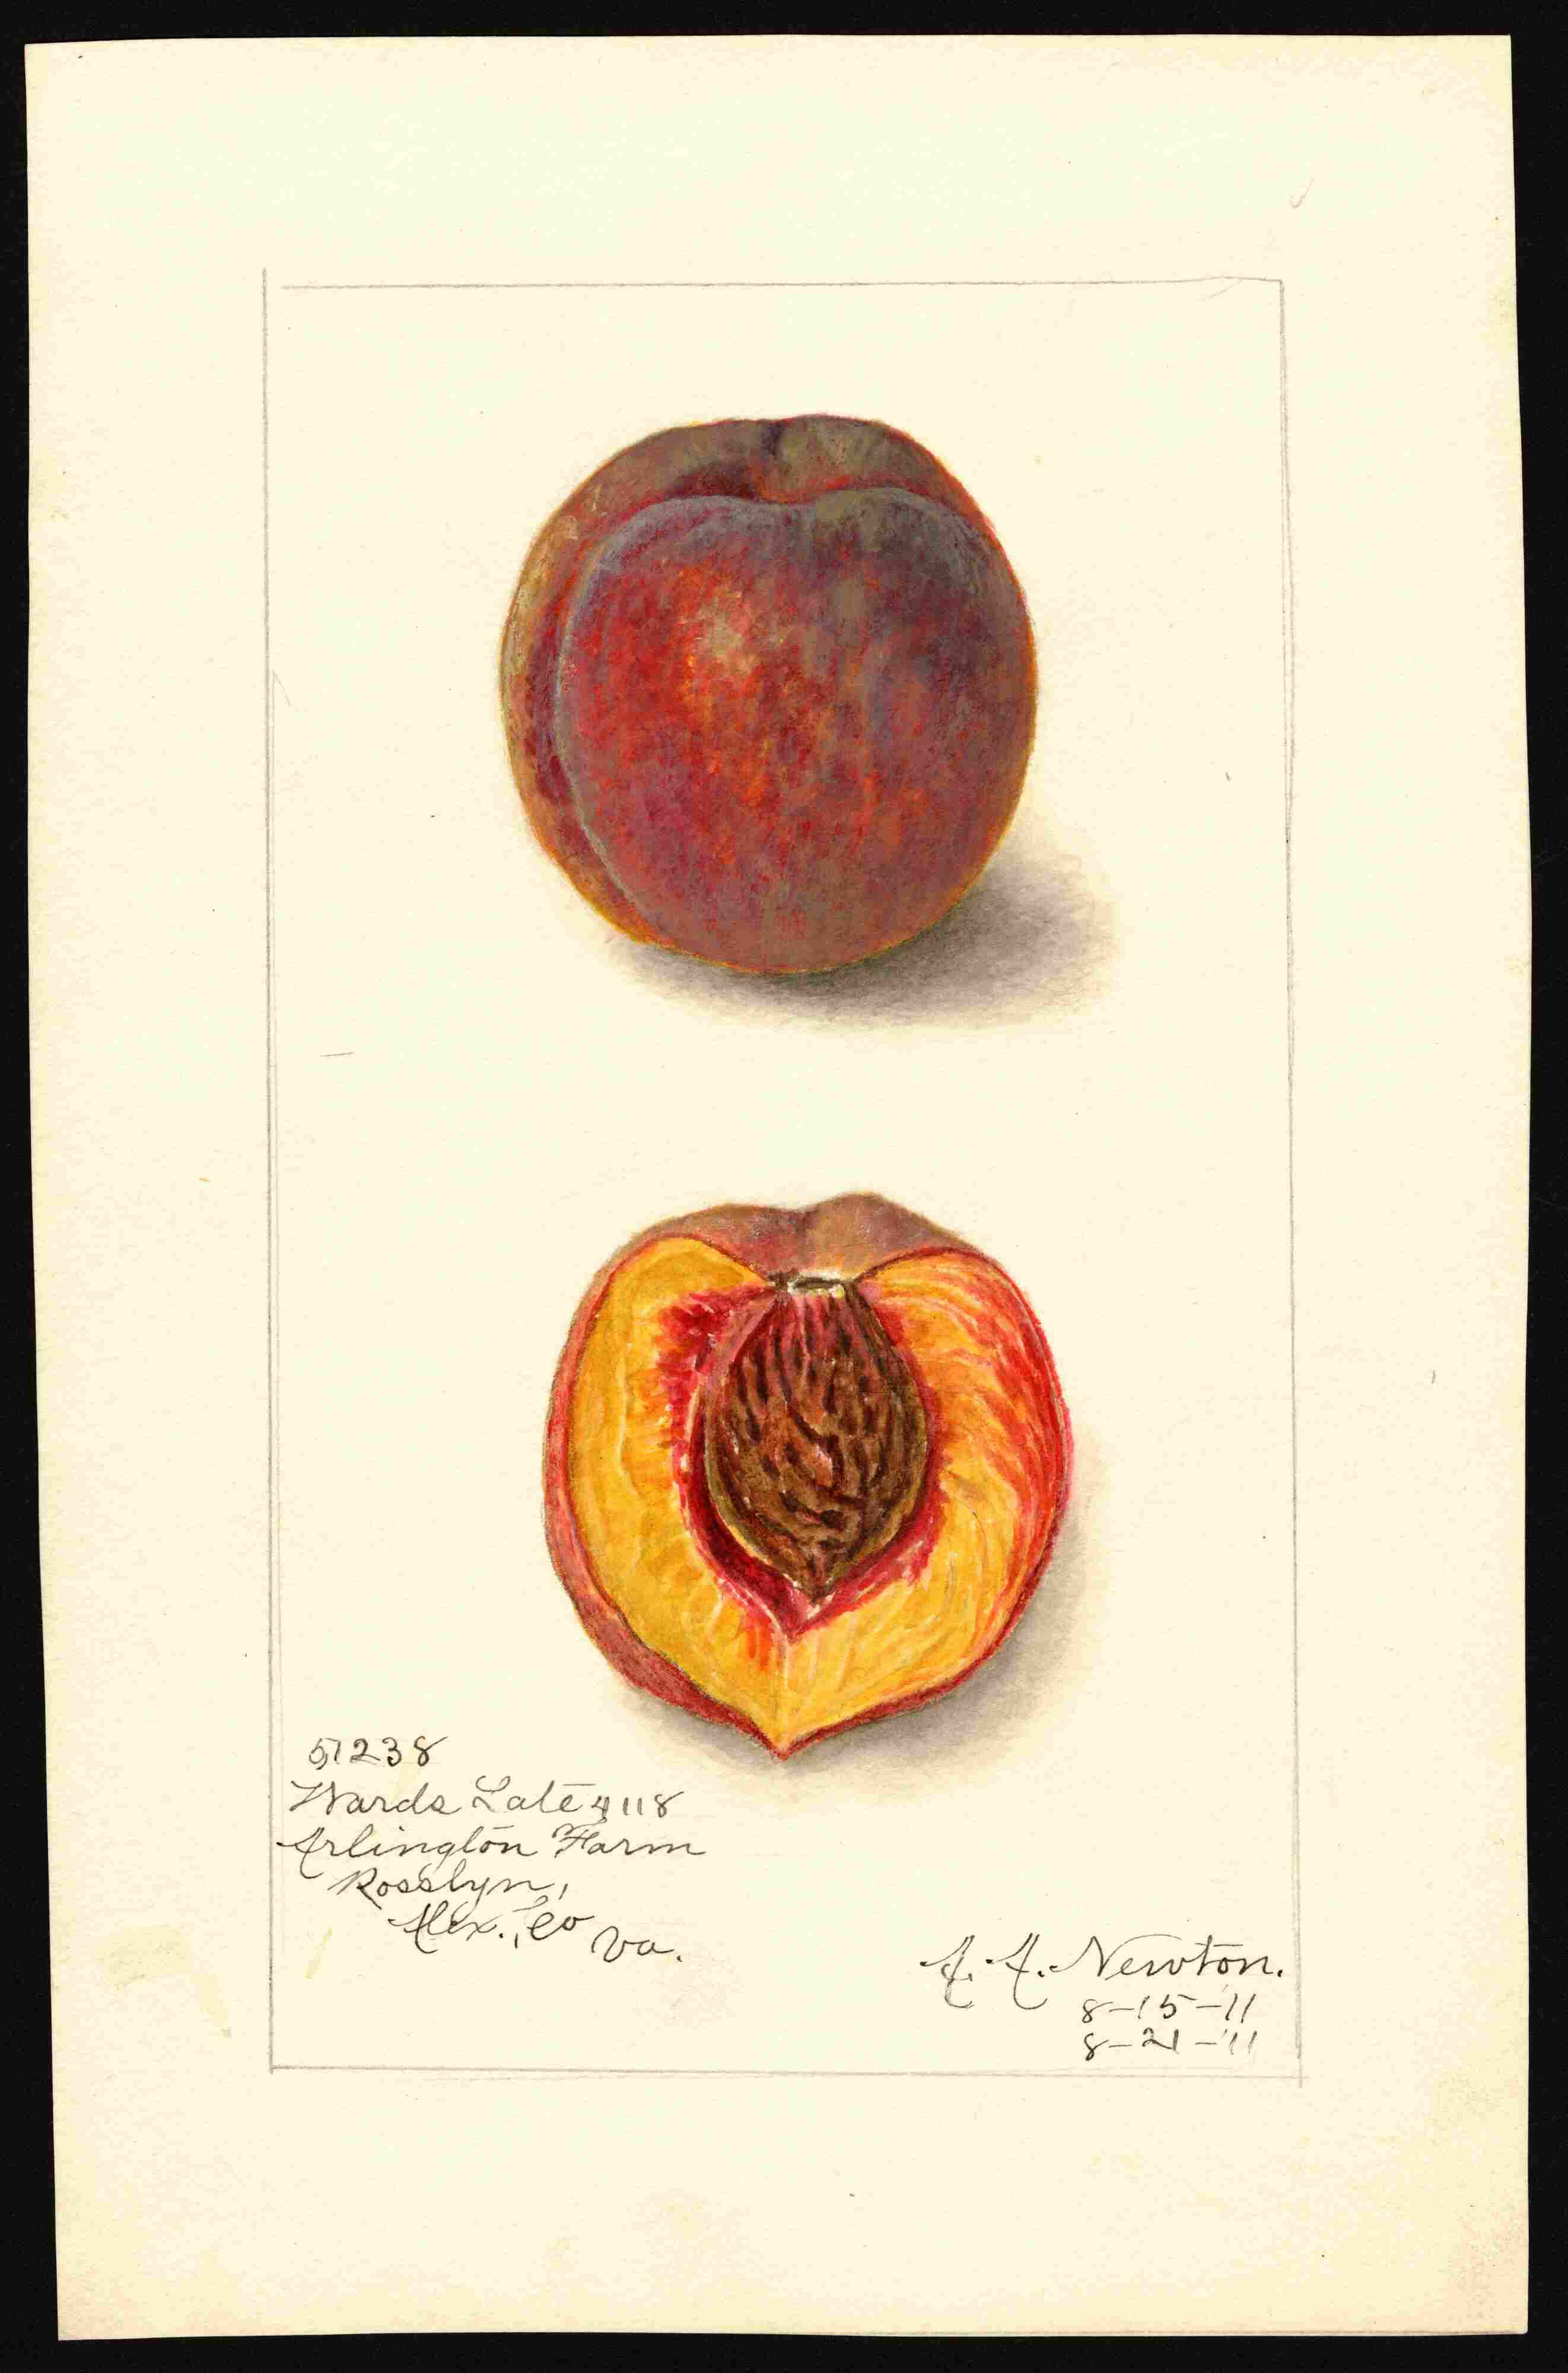 51238
Wards Late 4118
Arlington Farm
Rosslyn,
Alex., Co Va.
A. A. Newton.
8-15-11
8-21-'11